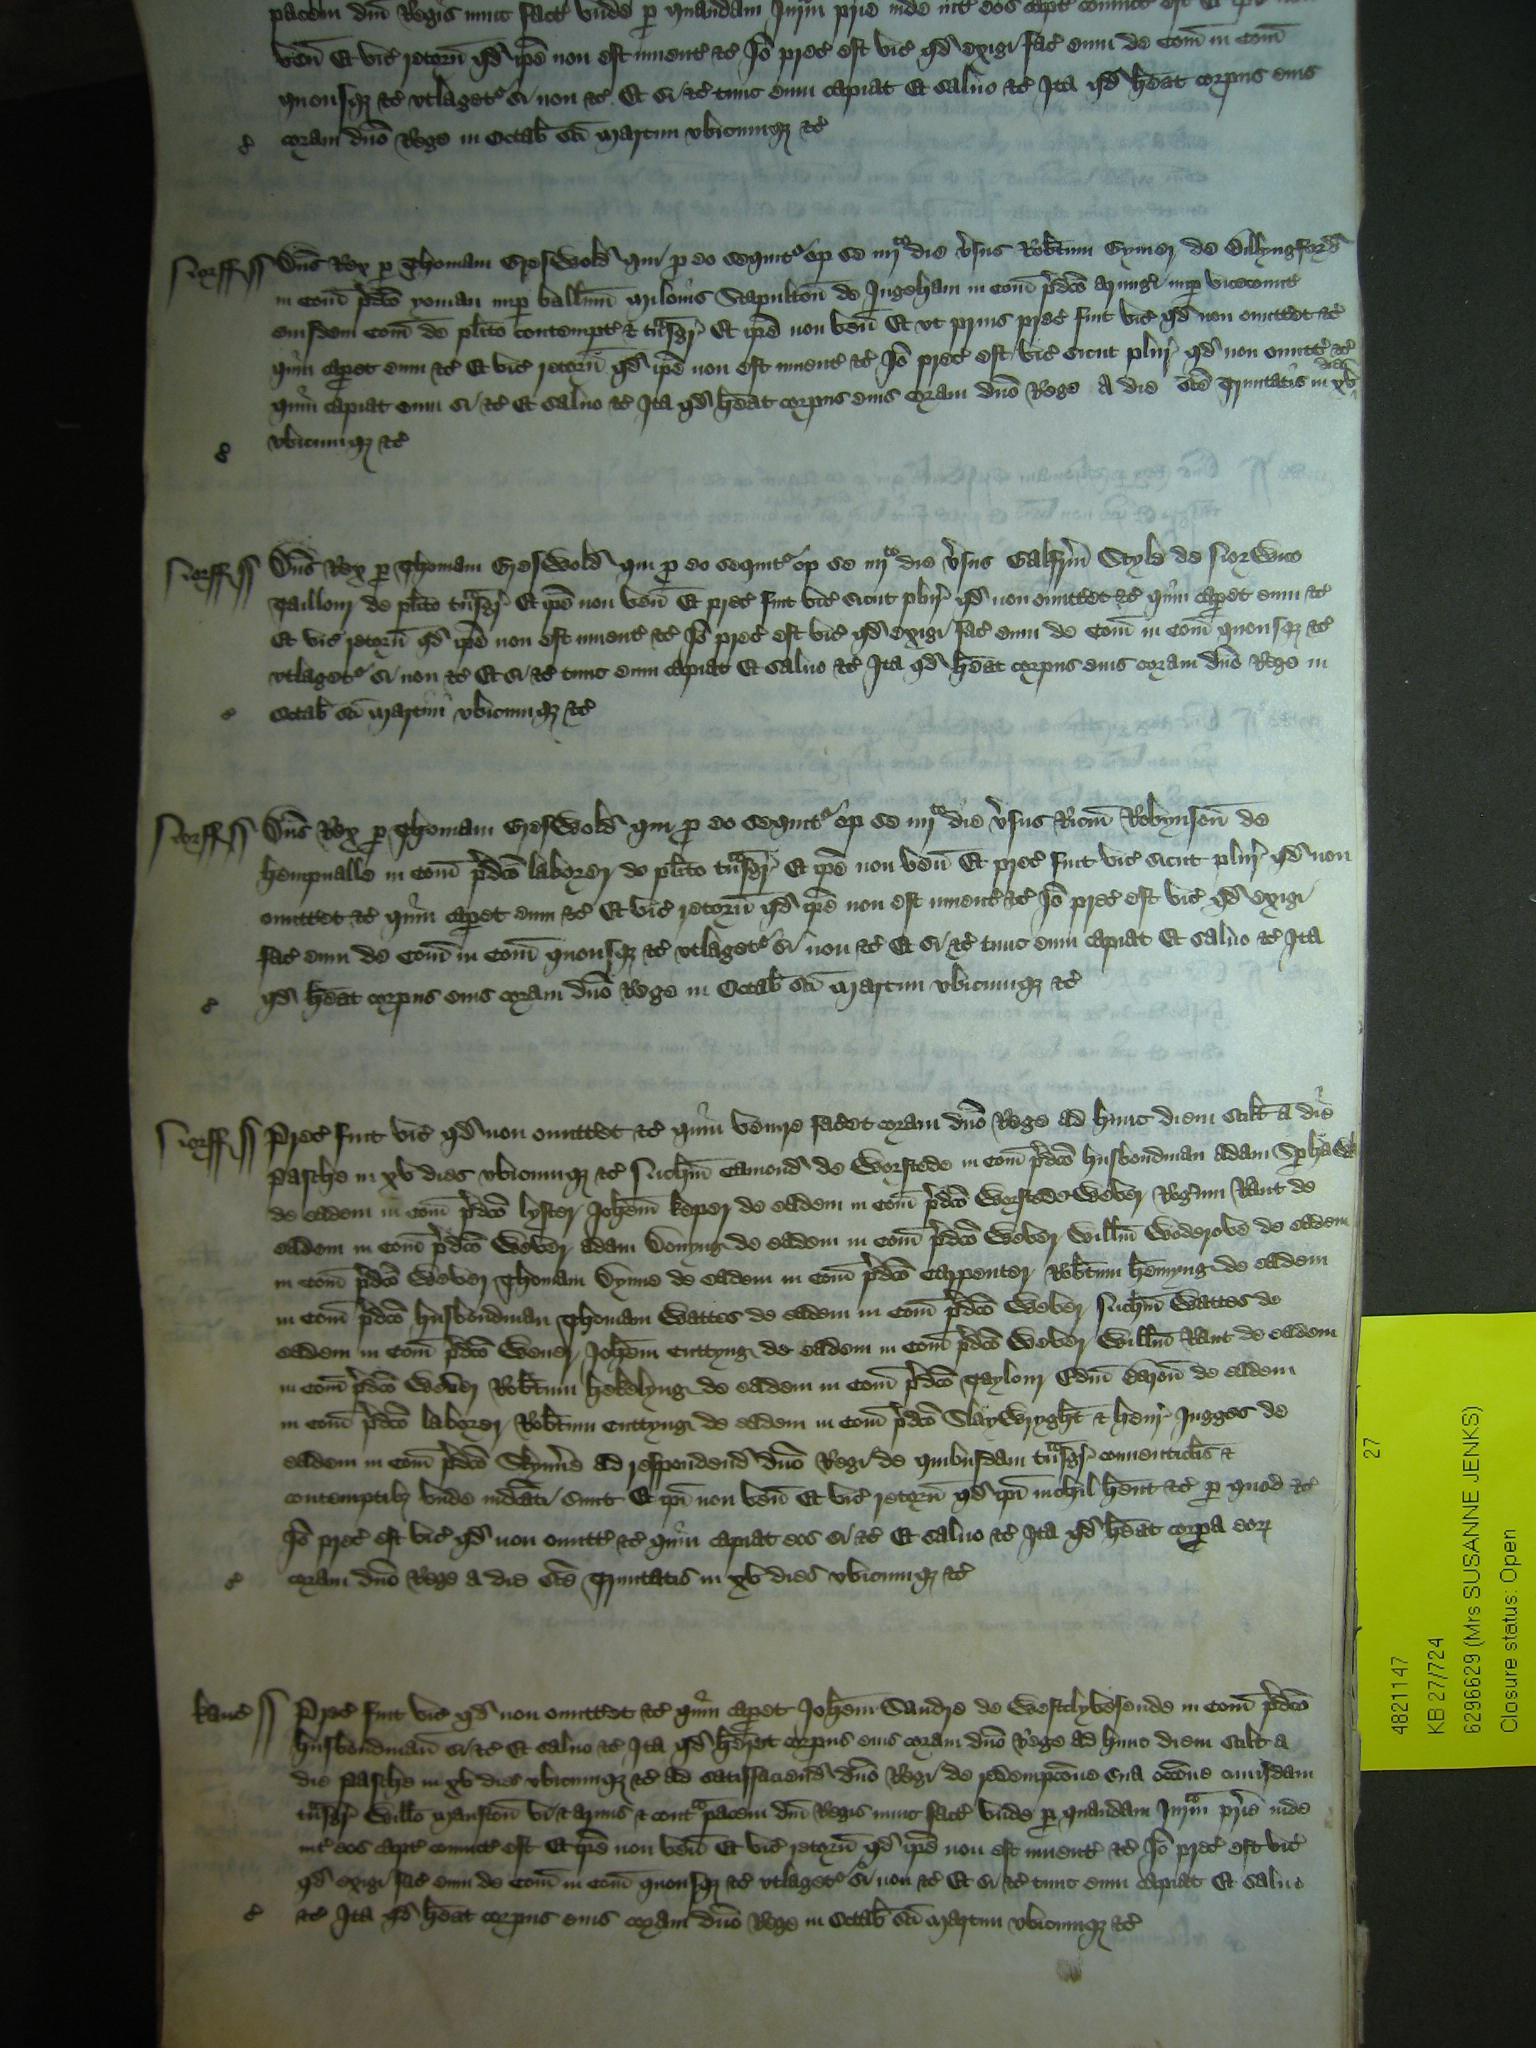 pacem dni Regis nunc fact unde p quandam Jurm prie inde int eos capt convict est Et ipe non
ven Et vic retorn qd ipe non est invent &c Jo prec est vic qd exigi fac eum de Com in Com
quousq &c utlaget si non &c Et si &c tunc eum capiat Et salvo &c Ita qd heat corpus eius
coram dno Rege in Octab sci Martini ubicumq &c
Norff ss Dns Rex p Thomam Greswold qui p eo sequit op se iiijto die vsus Robtum Gymer de Billyngford
in Com pdco yoman nup ballium Milonis Stapulton de Ingeham in Com pdco armigi nup vicecomit
eiusdem Com de plito contempt & tnsgr Et ipe non ven Et ut prius prec fuit vic qd non omittet &c
quin caperet eum &c Et vic retorn qd ipe non est invent &c Jo prec est vic sicut plur qd non omitt &c
quin capiat eum si &c Et salvo &c Ita qd heat corpus eius coram dno Rege A die sce Trinitatis in xv dies
ubicumq &c
Norff ss Dns Rex p Thomam Greswold qui p eo sequit op se iiijto die vsus Galfrm Style de Norwico
Taillour de plito tnsgr Et ipe non ven Et prec fuit vic sicut plur qd non omittet &c quin caperet eum &c
Et vic retorn qd ipe non est invent &c Jo prec est vic qd exigi fac eum de Com in Com quousq &c
utlaget si non &c Et si &c tunc eum capiat Et salvo &c Ita qd heat corpus eius coram dno Rege in
Octab sci Martini ubicumq &c
Norff ss Dns Rex p Thomam Greswold qui p eo sequit op se iiijto die vsus Ricm Robynson de
hempnalle in Com pdco laborer de plito tnsgr Et ipe non ven Et prec fuit vic sicut plur qd non
omittet &c quin caperet eum &c Et vic retorn qd ipe non est invent &c Jo prec est vic qd exigi
fac eum de Com in Com quousq &c utlaget si non &c Et si &c tunc eum capiat Et salvo &c Ita
qd heat corpus eius coram dno Rege in Octab sci Martini ubicumq &c
Norff ss Prec fuit vic qd non omittet &c quin venire faceret coram dno Rege ad hunc diem scilt a die
Pasche in xv dies ubicumq &c Nichm Eamond de Worstede in Com pdco husbondman Adam
de eadem in Com pdco lyster Johem keper de eadem in Com pdco Worstedewever Rogum Rant de
eadem in Com pdco Wever Adam Donyng de eadem in Com pdco Wever Willm Woderove de eadem
in Com pdco Wever Thomam Dynne de eadem in Com pdco Carpenter Robtum hemyng de eadem
in Com pdco husbondman Thomam Wattes de eadem in Com pdco Wever Nichm Wattes de
eadem in Com pdco Wever Johem Cuttyng de eadem in Com pdco Wever Willm Rant de eadem
in Com pdco Wever Robtum hekelyng de eadem in Com pdco Taylour Edm de eadem
in Com pdco laborer Robtum Cuttyng de eadem in Com pdco Slaywryght & henr Jugges de
eadem in Com pdco Skynne ad respondend dno Regi de quibusdam tnsgr conventiclis &
contemptib unde indcati sunt Et ipi non ven Et vic retorn qd ipi nichil hent &c p quod &c
Jo prec est vic qd non omitt &c quin capiat eos si &c Et salvo &c Ita qd heat corpa eor
coram dno Rege a die sce Trinitatis in xv dies ubicumq &c
kanc ss Prec fuit vic qd non omittet &c quin caperet Johem Sandre de Westclyvesende in Com pdco
husbondman si &c Et salvo &c Ita qd heret corpus eius coram dno Rege ad hunc diem scilt a
die Pasche in xv dies ubicumq &c ad satisfaciend dno Regi de redempcone sua occone cuiusdam
tnsgr Willo Manston vi & armis & cont pacem dni Regis nunc fact unde p quandam Jurm prie inde
int eos capt convict est Et ipe non ven Et vic retorn qd ipe non est invent &c Jo prec est vic
qd exigi fac eum de Com in Com quousq &c utlaget si non &c Et si &c tunc eum capiat Et salvo
&c Ita qd heat corpus eius coram dno Rege in Octab sci Martini ubicumq &c
27
4821147
KB 27/724
6296629 (Mrs SUSANNE JENKS)
Closure status: Open